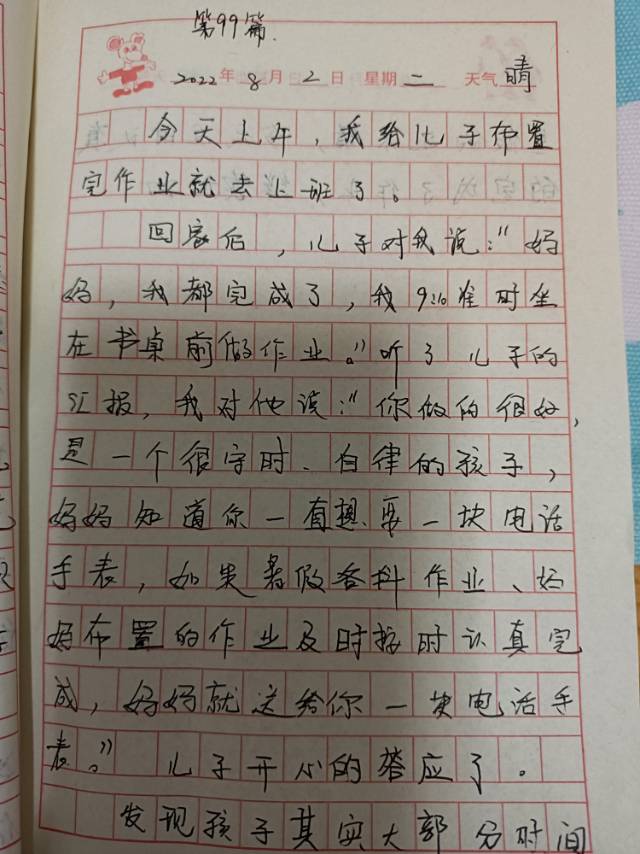 第99篇
2022年8月2日 星期二 天气晴
今天上午，我给儿子布置
完作业就去上班了。
回家后，儿子对我说："妈
妈，我都完成了，我9:10准时坐
在书桌前做作业。"听了儿子的
汇报，我对他说："你做的很好，
是一个很守时、自律的孩子，
妈妈知道你一直想要一块电话
手表，如果暑假各科作业、妈
妈布置的作业及时按时认真完
成，妈妈就送给你一块电话手
表。"儿子开心的答应了。
发现孩子其实大部分时间